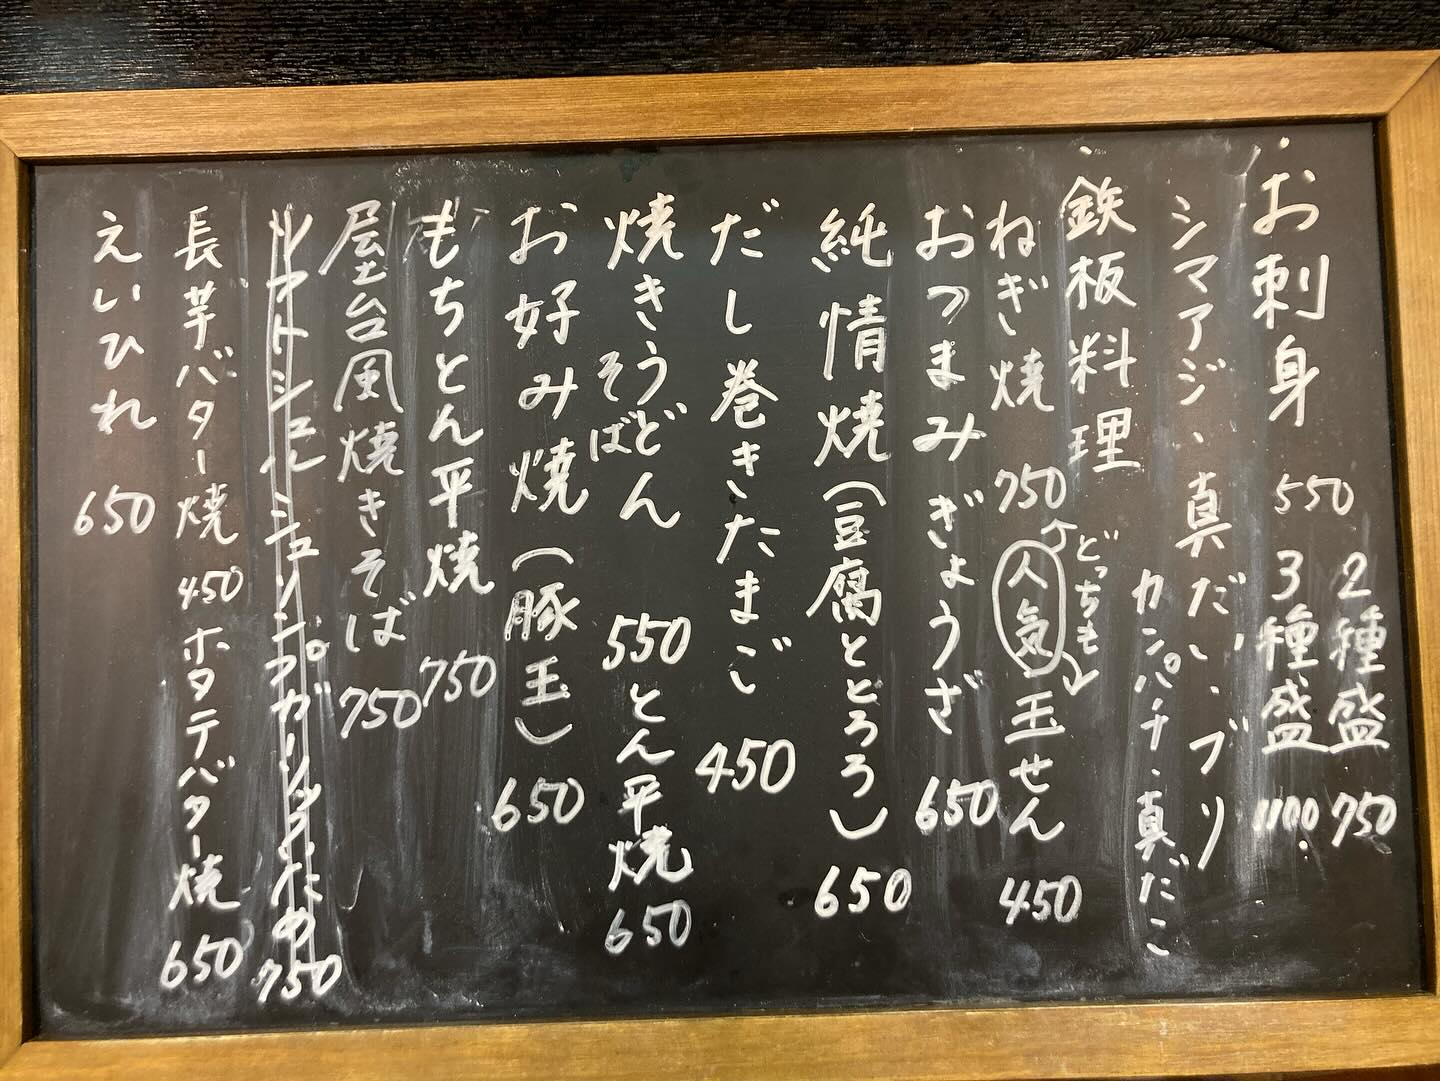 お刺身 550 2種盛 750
3種盛 1100
シマアジ、真だい、ブリ
カンパチ・真だこ
鉄板料理
ねぎ焼 750 人気 玉せん 450
どっちも
おつまみぎょうざ 650
純情焼(豆腐ととろろ) 650
だし巻きたまご 450
焼きうどん 550 とん平焼 650
そば
お好み焼(豚玉) 650
もちとん平焼 750
屋台風焼きそば 750
ソフトシェルシュリンプガーリック
750
長芋バター焼 450 ホタテバター焼 650
えいひれ 650